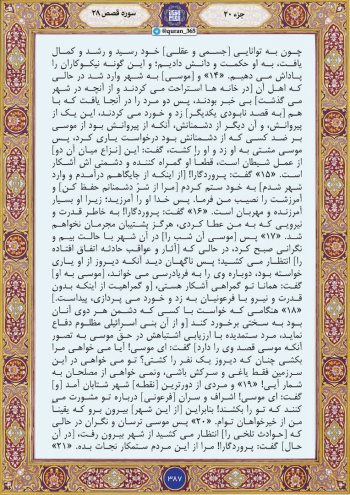 جزء ۲۰
سوره قصص ۲۸
@quran_365
چون به توانایی [جسمی و عقلی] خود رسید و رشد و کمال
یافت، به او حکمت و دانش دادیم؛ و این گونه نیکوکاران را
پاداش می دهیم. «۱۴» و [موسی] به شهر وارد شد در حالی
که اهل آن [در خانه ها] استراحت می کردند و از آنچه در شهر
می گذشت] بی خبر بودند، پس دو مرد را در آنجا یافت که با
هم [به قصد نابودی یکدیگر] زد و خورد می کردند، این یک از
پیروانش، و آن دیگر از دشمنانش، آنکه از پیروانش بود از موسی
بر ضد کسی که از دشمنانش بود درخواست یاری کرد، پس
موسی مشتی به او زد و او را کشت، گفت: این [نزاع میان آن دو]
از عمل شیطان است، قطعا او گمراه کننده و دشمنی اش آشکار
است. «۱۵» گفت: پروردگارا! [از اینکه از جایگاهم درآمدم و وارد
شهر شدم] به خود ستم کردم [مرا از شرّ دشمنانم حفظ کن] و
آمرزشت را نصیب من فرما. پس خدا او را آمرزید؛ زیرا او بسیار
آمرزنده و مهربان است. «۱۶» گفت: پروردگارا! به خاطر قدرت و
نیرویی که به من عطا کردی، هرگز پشتیبان مجرمان نخواهم
شد. «۱۷» پس [موسی آن شب را] در آن شهر با حالت بیم و
نگرانی صبح کرد، در حالی که [آثار و عواقب حادثه اتفاق افتاده
را] انتظار می کشید؛ پس ناگهان دید آنکه دیروز از او یاری
خواسته بود، دوباره وی را به فریادرسی می خواند، [موسی به او]
گفت: همانا تو گمراهی آشکار هستی، [و گمراهیت از اینکه بدون
قدرت و نیرو با فرعونیان به زد و خورد می پردازی، پیداست.]
«۱۸» هنگامی که خواست با کسی که دشمن هر دوی آنان
بود به سختی برخورد کند [و از آن بنی اسرائیلی مظلوم دفاع
نماید، مرد ستمدیده با ارزیابی اشتباهش در حق موسی به تصور
آنکه موسی قصد وی را دارد] گفت: ای موسی! آیا می خواهی مرا
بکشی چنان که دیروز یک نفر را کشتی؟ تو می خواهی در این
سرزمین فقط یاغی و سرکش باشی، ونمی خواهی از مصلحان به
شمار آیی! «۱۹» و مردی از دورترین [نقطه] شهر شتابان آمد و]
گفت: ای موسی! اشراف و سران [فرعونی] درباره تو مشورت می
کنند که تو را بکشند! بنابراین [از این شهر] بیرون برو که یقینا
من از خیرخواهان توام. «۲۰» پس موسی ترسان و نگران در حالی
که [حوادث تلخی را] انتظار می کشید از شهر بیرون رفت، [در آن
حال] گفت: پروردگارا! مرا از این مردم ستمکار نجات بده. «۲۱»
۳۸۷